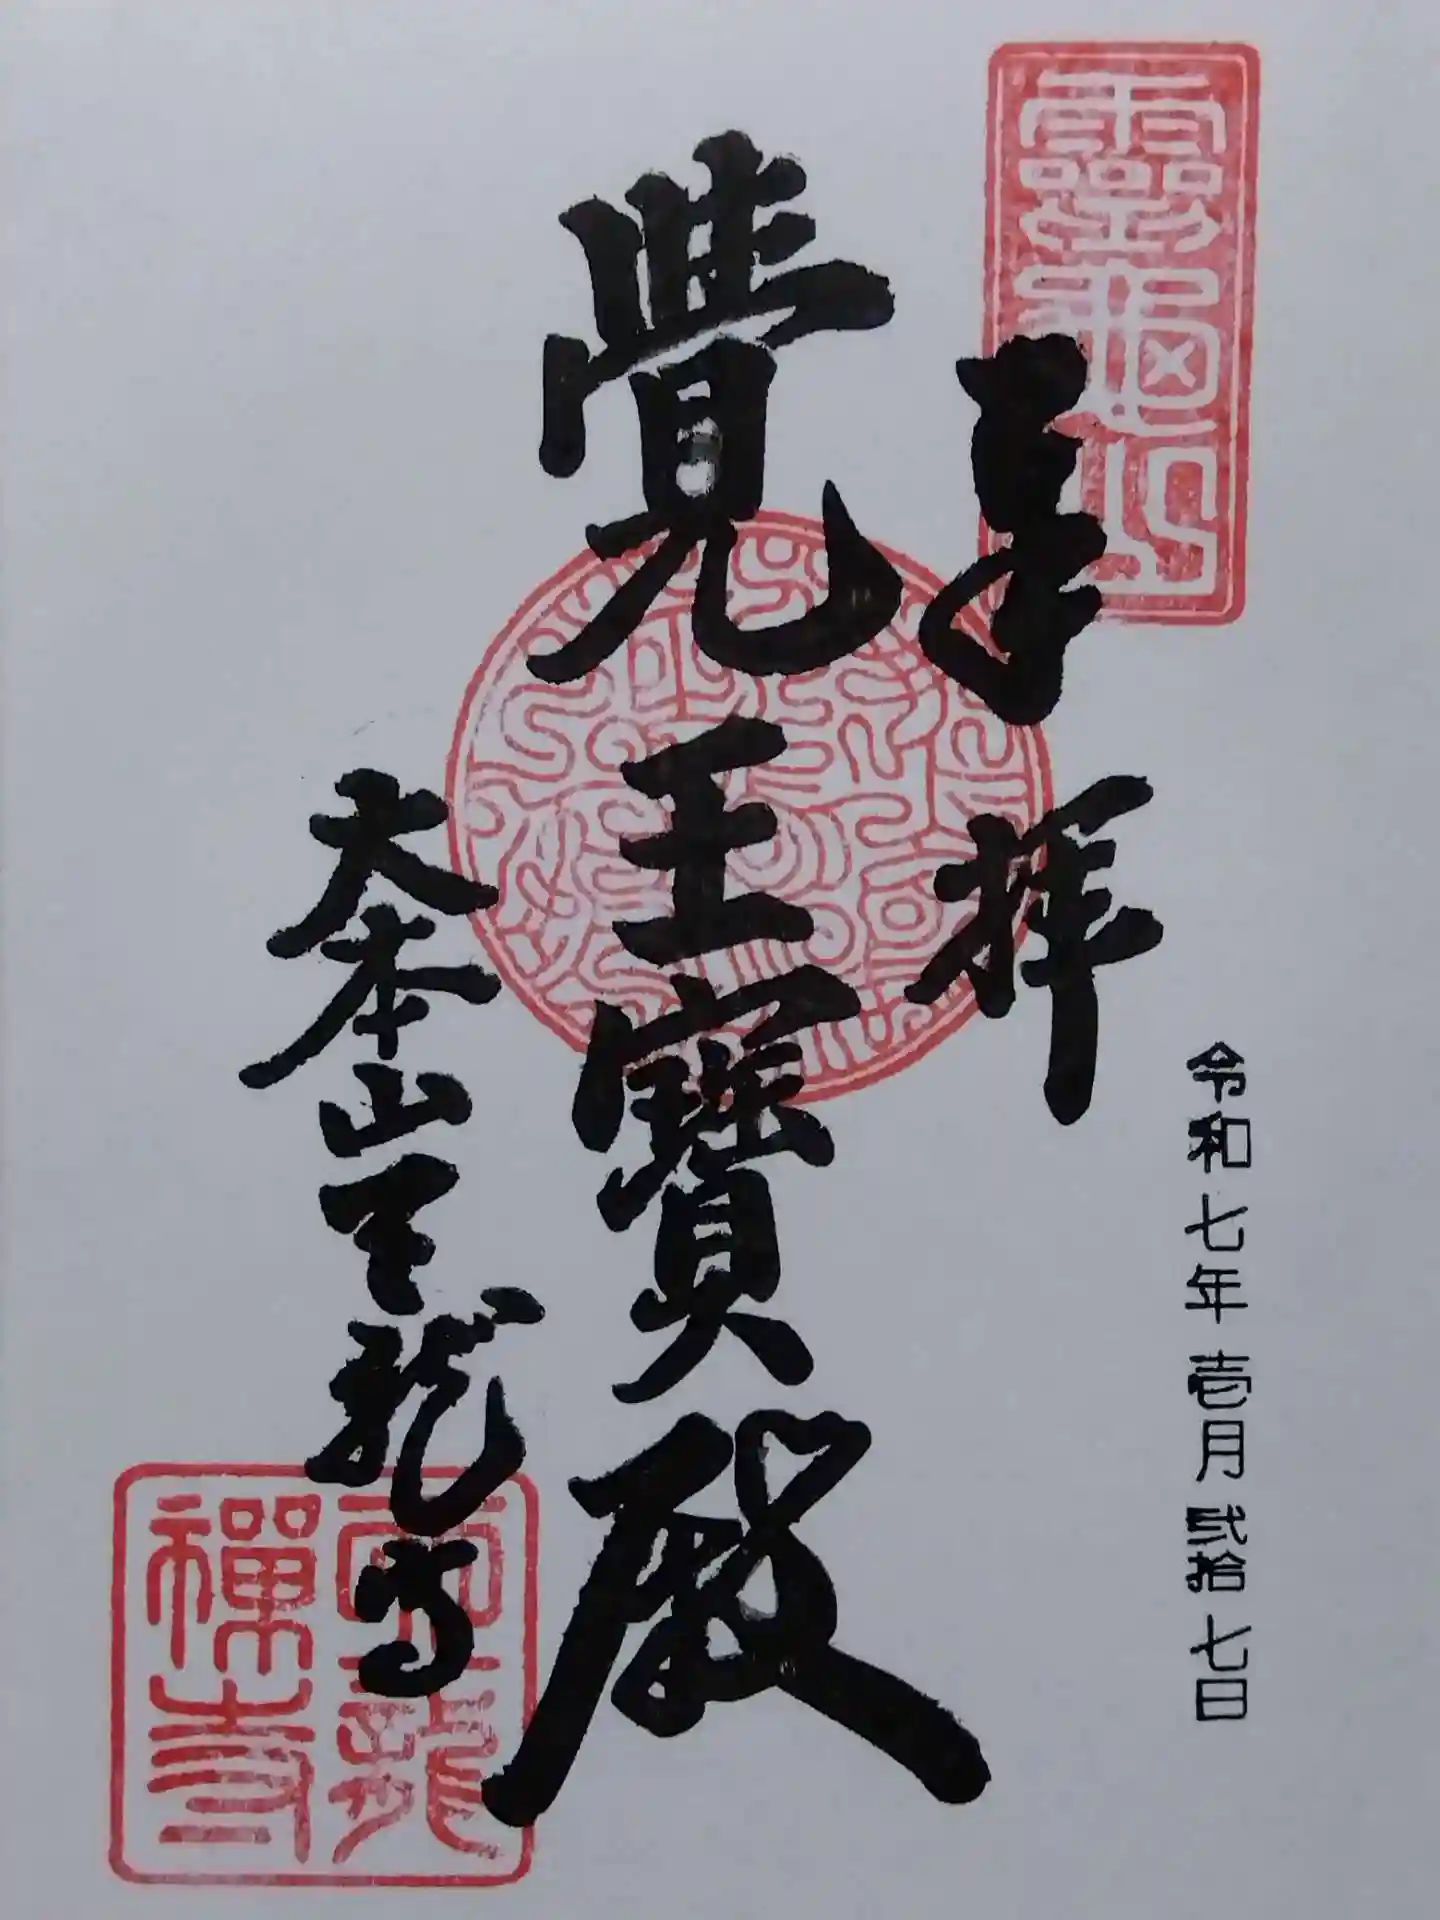 靈龜山
奉拝
令和七年壱月弐拾七日
覺王寳殿
大本山天龍寺
天龍
禪寺